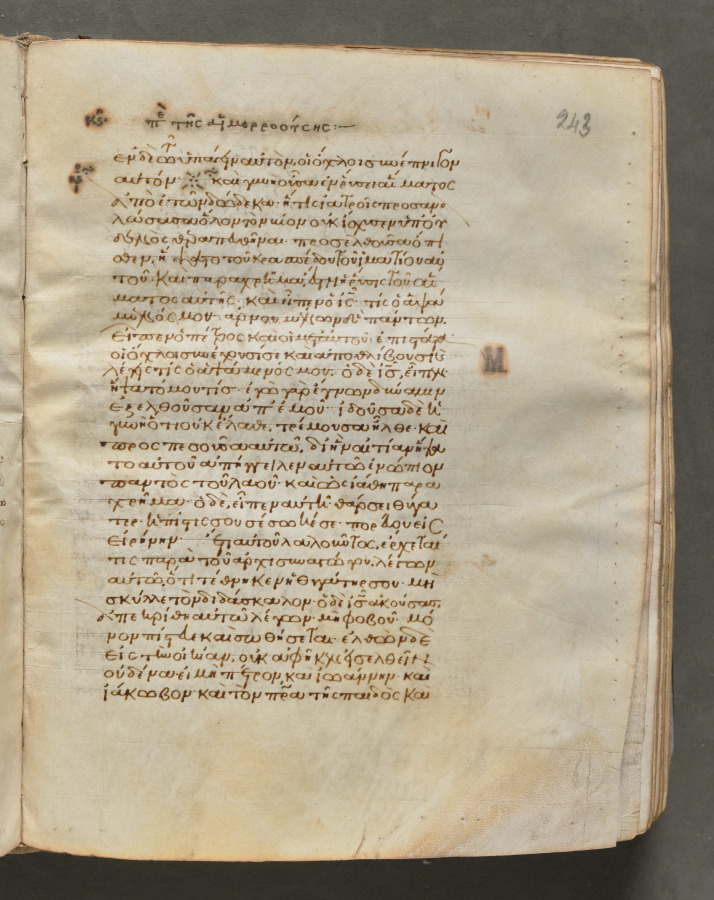 243
πε τῆς αἱμορροούσης:
ἐν δὲ τῷ ὑπάγειν αὐτὸν, οἱ ὄχλοι συνέπνιγον
αὐτόν· καὶ γυνὴ οὖσα ἐν ῥύσει αἵματος
ἀπὸ ἐτῶν δώδεκα· ἥτις ἰατροῖς προσανα
λώσασα ὅλον τὸν βίον οὐκ ἴσχυσεν ὑπ' οὐ
δενὸς θεραπευθῆναι· προσελθοῦσα ὄπι
σθεν, ἥψατο τοῦ κρασπέδου τοῦ ἱματίου αὐ
τοῦ· καὶ παραχρῆμα ἔστη ἡ ῥύσις τοῦ αἵ
ματος αὐτῆς· καὶ εἶπεν ὁ ις· τίς ὁ ἁψά
μενός μου· ἀρνουμένων δὲ πάντων·
εἶπεν ὁ πέτρος καὶ οἱ μετ' αὐτοῦ· ἐπιστάτα·
οἱ ὄχλοι συνέχουσί σε καὶ ἀποθλίβουσι κ
λέγεις τίς ὁ ἁψάμενός μου; ὁ δὲ ις, εἶπεν·
ἥψατό μού τις· ἐγὼ γὰρ ἔγνων δύναμιν
ἐξελθοῦσαν ἀπ' ἐμοῦ· ἰδοῦσα δὲ ἡ
γυνὴ ὅτι οὐκ ἔλαθε, τρέμουσα ἦλθε· καὶ
προσπεσοῦσα αὐτῷ, δι' ἣν αἰτίαν ἥψα
το αὐτοῦ ἀπήγγειλεν αὐτῷ ἐνώπιον
παντὸς τοῦ λαοῦ· καὶ ὡς ἰάθη παρα
χρῆμα· ὁ δὲ, εἶπεν αὐτῇ· θάρσει θύγα
τερ· ἡ πίστις σου σέσωκέ σε· πορεύου εἰς
εἰρήνην· ἔτι αὐτοῦ λαλοῦντος, ἔρχεταί
τις παρὰ τοῦ ἀρχισυναγώγου, λέγων
αὐτῷ, ὅτι τέθνηκεν ἡ θυγάτηρ σου· μὴ
σκύλλε τὸν διδάσκαλον· ὁ δὲ ις ἀκούσας,
ἀπεκρίθη αὐτῷ λέγων· μὴ φοβοῦ· μό
νον πίστευε καὶ σωθήσεται· ἐλθὼν δὲ
εἰς τὴν οἰκίαν, οὐκ ἀφῆκεν εἰσελθεῖν
οὐδένα εἰ μὴ πέτρον, καὶ ἰωάννην· καὶ
ἰάκωβον· καὶ τὸν πρα τῆς παιδὸς καὶ
M